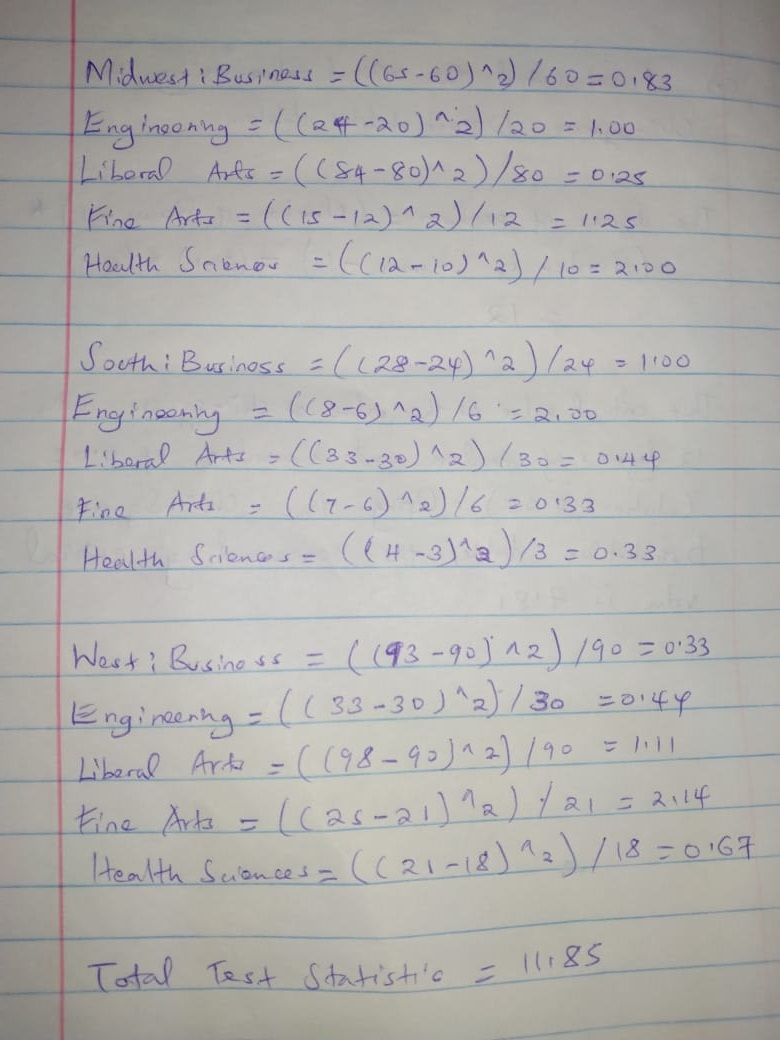 Midwest: Business = ((65-60)^2)/60 = 0.83
Engineering = ((24-20)^2)/20 = 1.00
Liberal Arts = ((84-80)^2)/80 = 0.25
Fine Arts = ((15-12)^2)/12 = 1.25
Health Sciences = ((12-10)^2)/10 = 2.00
South: Business = ((28-24)^2)/24 = 1.00
Engineering = ((8-6)^2)/6 = 2.00
Liberal Arts = ((33-30)^2)/30 = 0.44
Fine Arts = ((7-6)^2)/6 = 0.33
Health Sciences = ((4-3)^2)/3 = 0.33
West: Business = ((93-90)^2)/90 = 0.33
Engineering = ((33-30)^2)/30 = 0.44
Liberal Arts = ((98-90)^2)/90 = 1.11
Fine Arts = ((25-21)^2)/21 = 2.14
Health Sciences = ((21-18)^2)/18 = 0.67
Total Test Statistic = 11.85